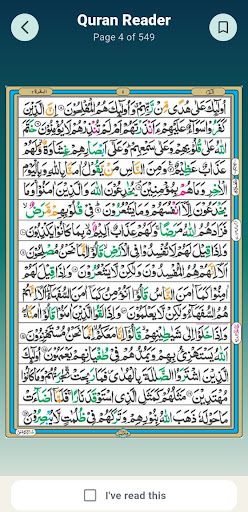 Quran Reader
Page 4 of 549
البقرة ٢
٤
الٓمّٓ ١
اُولٰٓئِكَ عَلٰى هُدًى مِّنْ رَّبِّهِمْ وَاُولٰٓئِكَ هُمُ الْمُفْلِحُوْنَ اِنَّ الَّذِيْنَ
كَفَرُوْا سَوَآءٌ عَلَيْهِمْ ءَاَنْذَرْتَهُمْ اَمْ لَمْ تُنْذِرْهُمْ لَا يُؤْمِنُوْنَ خَتَمَ
اللّٰهُ عَلٰى قُلُوْبِهِمْ وَعَلٰى سَمْعِهِمْ وَعَلٰٓى اَبْصَارِهِمْ غِشَاوَةٌ وَّلَهُمْ
عَذَابٌ عَظِيْمٌ وَمِنَ النَّاسِ مَنْ يَّقُوْلُ اٰمَنَّا بِاللّٰهِ وَبِالْيَوْمِ
الْاٰخِرِ وَمَا هُمْ بِمُؤْمِنِيْنَ يُخٰدِعُوْنَ اللّٰهَ وَالَّذِيْنَ اٰمَنُوْا وَمَا
يَخْدَعُوْنَ اِلَّآ اَنْفُسَهُمْ وَمَا يَشْعُرُوْنَ فِيْ قُلُوْبِهِمْ مَّرَضٌ
فَزَادَهُمُ اللّٰهُ مَرَضًا وَلَهُمْ عَذَابٌ اَلِيْمٌ بِمَا كَانُوْا يَكْذِبُوْنَ
وَاِذَا قِيْلَ لَهُمْ لَا تُفْسِدُوْا فِى الْاَرْضِ قَالُوْٓا اِنَّمَا نَحْنُ مُصْلِحُوْنَ
اَلَآ اِنَّهُمْ هُمُ الْمُفْسِدُوْنَ وَلٰكِنْ لَّا يَشْعُرُوْنَ وَاِذَا قِيْلَ لَهُمْ
اٰمِنُوْا كَمَآ اٰمَنَ النَّاسُ قَالُوْٓا اَنُؤْمِنُ كَمَآ اٰمَنَ السُّفَهَآءُ اَلَآ اِنَّهُمْ
هُمُ السُّفَهَآءُ وَلٰكِنْ لَّا يَعْلَمُوْنَ وَاِذَا لَقُوا الَّذِيْنَ اٰمَنُوْا قَالُوْٓا اٰمَنَّا
وَاِذَا خَلَوْا اِلٰى شَيٰطِيْنِهِمْ قَالُوْٓا اِنَّا مَعَكُمْ اِنَّمَا نَحْنُ مُسْتَهْزِءُوْنَ
اَللّٰهُ يَسْتَهْزِئُ بِهِمْ وَيَمُدُّهُمْ فِيْ طُغْيَانِهِمْ يَعْمَهُوْنَ اُولٰٓئِكَ
الَّذِيْنَ اشْتَرَوُا الضَّلٰلَةَ بِالْهُدٰى فَمَا رَبِحَتْ تِّجَارَتُهُمْ وَمَا كَانُوْا
مُهْتَدِيْنَ مَثَلُهُمْ كَمَثَلِ الَّذِى اسْتَوْقَدَ نَارًا فَلَمَّآ اَضَآءَتْ
مَا حَوْلَهٗ ذَهَبَ اللّٰهُ بِنُوْرِهِمْ وَتَرَكَهُمْ فِيْ ظُلُمٰتٍ لَّا يُبْصِرُوْنَ
I've read this